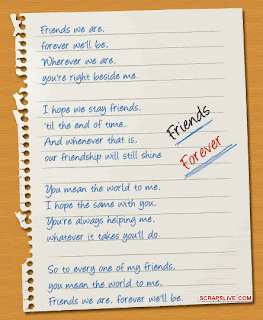 Friends we are,
forever we'll be.
Wherever we are,
you're right beside me.
I hope we stay friends,
'til the end of time.
And whenever that is,
our friendship will still shine
Friends
Forever
You mean the world to me,
I hope the same with you,
You're always helping me,
whatever it takes you'll do.
So to every one of my friends,
you mean the world to me,
Friends we are, forever we'll be
SCRAPSLIVE.COM